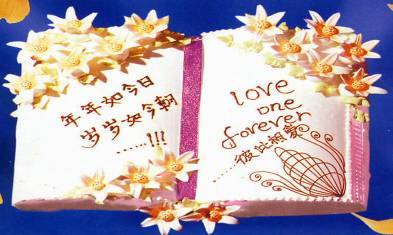 年年如今日
岁岁如今朝
......!!!
love
one
forever
......彼此相爱